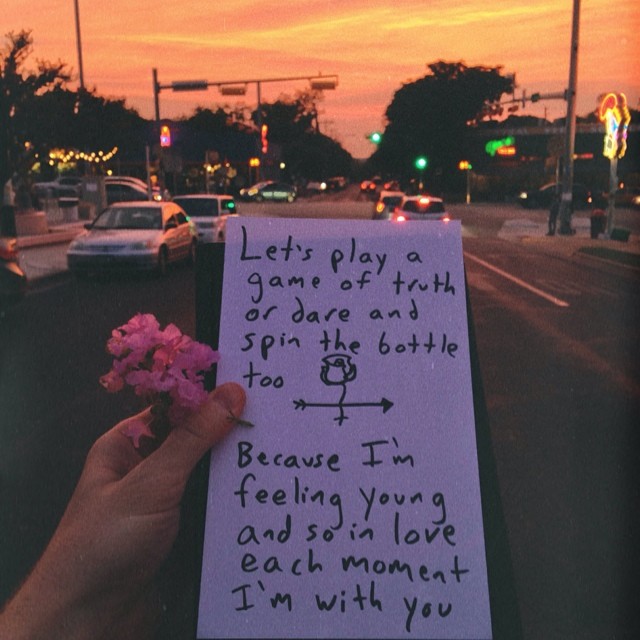 Let's play a
game of truth
or dare and
spin the bottle
too
Because I'm
feeling young
and so in love
each moment
I'm with you